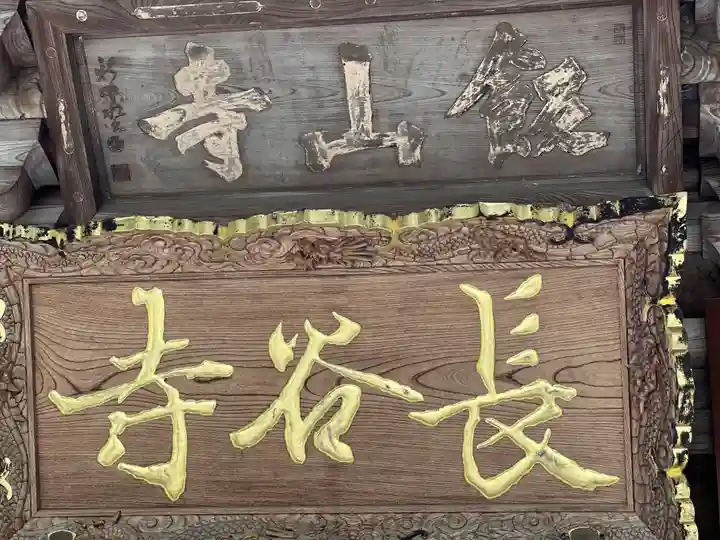 飯山寺
長谷寺